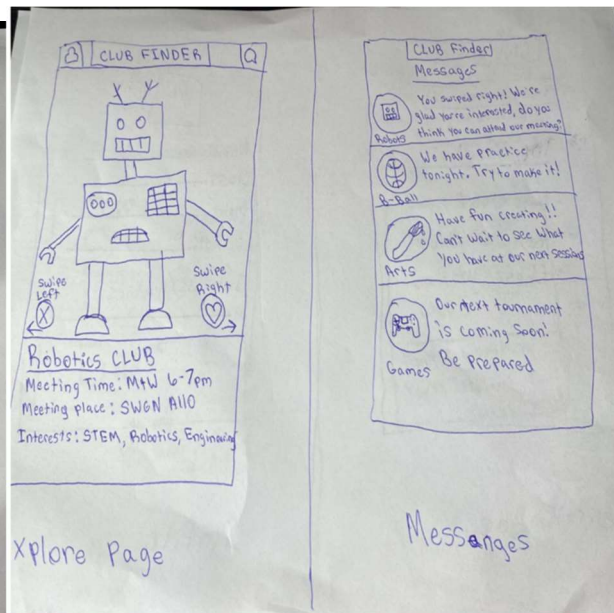 CLUB FINDER
Swipe
Left
X
Swipe
Right
Robotics CLUB
Meeting Time: M+W 6-7pm
Meeting place: SWGN A110
Interests: STEM, Robotics, Engineering
Xplore Page
CLUB Finder
Messages
You swiped right! We're
glad you're interested, do you
think you can attend our meeting?
Robots
We have practice
tonight. Try to make it!
B-Ball
Have fun creating!!
Can't wait to see what
You have at our next session
Arts
Our next tournament
is coming soon!
Be prepared
Games
Messanges